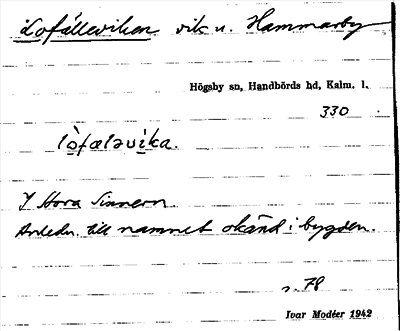 Lofälleviken vik u. Hammarby
Högsby sn, Handbörds hd, Kalm. l.
330
lòfæləvi̇ka.
I Stora Sinnern.
Anledn. till namnet okänd i bygden.
s. 78
Ivar Modéer 1942